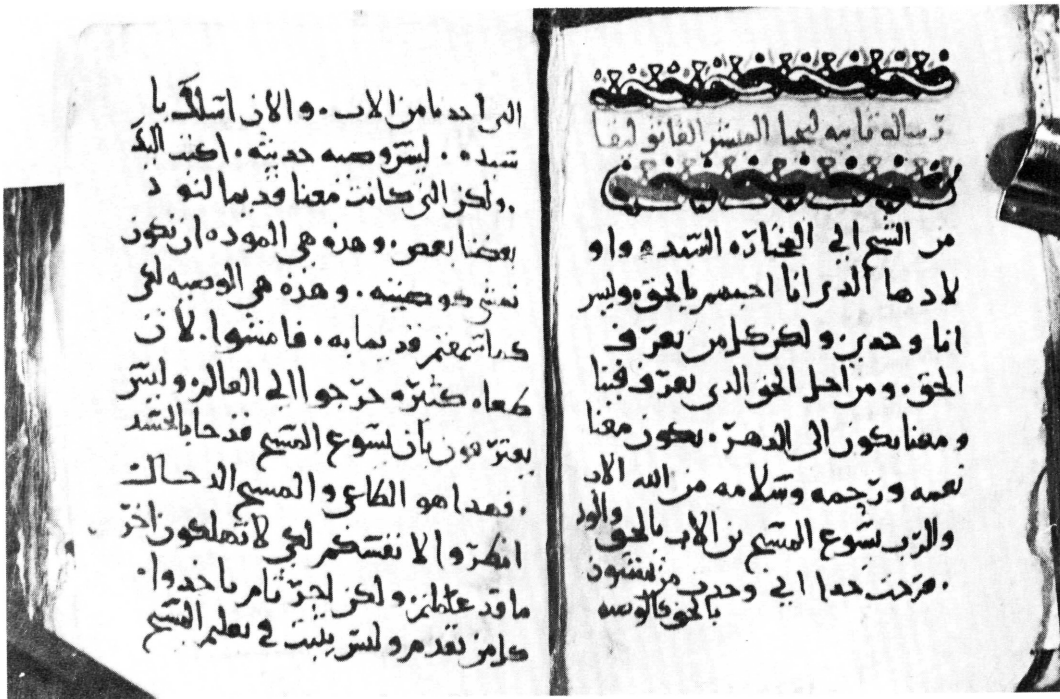 رساله ثانيه ليحيا المبشر القاثوليقا
من الشيخ الي المختاره السيده واو
لادها الذي انا احبهم بالحق وليس
انا وحدي ولكن كل من يعرف
الحق. ومن اجل الحق الذي يعرف فينا
ومعنا يكون الى الدهر. يكون معنا
نعمه ورحمه وسلامه من الله الاب
والرب يسوع المسيح بن الاب بالحق والود
. فرحت جدا اني وجدت من يمشون
بالحق كالوصيه
التي اخذنا من الاب. والان اسلك يا
سيده. ليس وصيه حديثه. اكتب اليك
. ولكن التي كانت معنا قديما لنود
بعضنا بعض. وهذه هي الموده ان نكون
نمشي كوصيته. وهذه هي الوصيه لكي
كما سمعتم قديما به. فامشوا. لان
طعاه كثيره خرجوا الي العالم. وليس
يعترفون بان يسوع المسيح قد جا بالجسد
. فهدا هو الطاعي والمسيح الدجال
انظروا لانفسكم لكي لا تهلكون
ما قد عملتم ولكن اجر تام تاخدوا.
كل من تقدم وليس يثبت في تعليم المسيح